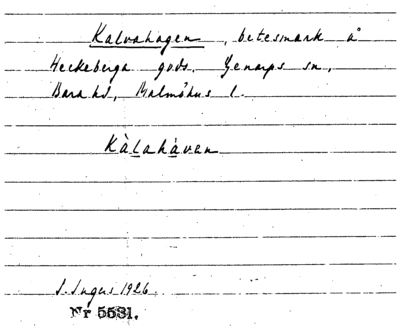 Kalvahagen, betesmark å
Heckeberga gods, Genarps sn,
Bara hd, Malmöhus l.
Kàlahàven
S. Ingers 1926.
Nr 5531.